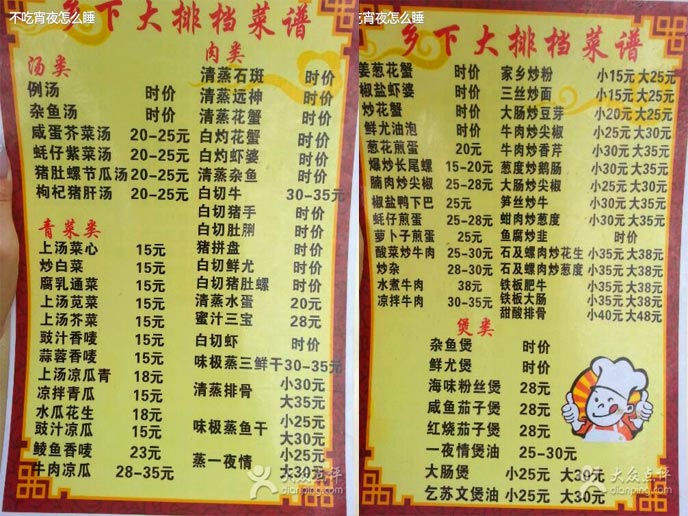 不吃宵夜怎么睡
乡下大排档菜谱
汤类
例汤 时价
杂鱼汤 时价
咸蛋芥菜汤 20-25元
蚝仔紫菜汤 20-25元
猪肚螺节瓜汤 20-25元
枸杞猪肝汤 20-25元
青菜类
上汤菜心 15元
炒白菜 15元
腐乳通菜 15元
上汤苋菜 15元
上汤芥菜 15元
豉汁香唛 15元
蒜蓉香唛 15元
上汤凉瓜青 18元
凉拌青瓜 15元
水瓜花生 18元
豉汁凉瓜 15元
鲮鱼香唛 23元
牛肉凉瓜 28-35元
肉类
清蒸石斑 时价
清蒸远神 时价
清蒸花蟹 时价
白灼花蟹 时价
白灼虾婆 时价
清蒸杂鱼 时价
白切牛 30-35元
白切猪手 时价
白切肚脷 时价
猪拼盘 时价
白切鲜尤 时价
白切猪肚螺 时价
清蒸水蛋 20元
蜜汁三宝 28元
白切虾 时价
味极蒸三鲜干 30-35元
清蒸排骨 小30元 大35元
味极蒸鱼干 小25元 大30元
蒸一夜情 小25元 大30元
大众点评
dianping.com
不吃宵夜怎么睡
乡下大排档菜谱
姜葱花蟹 时价
椒盐虾婆 时价
炒花蟹 时价
鲜尤油泡 时价
葱花煎蛋 20元
爆炒长尾螺 15-20元
腩肉炒尖椒 25-28元
椒盐鸭下巴 25元
蚝仔煎蛋 25-28元
萝卜子煎蛋 25元
酸菜炒牛肉 25-28元
炒杂 28-30元
水煮牛肉 38元
凉拌牛肉 30-35元
家乡炒粉 小15元 大25元
三丝炒面 小15元 大25元
大肠炒豆芽 小20元 大25元
牛肉炒尖椒 小25元 大30元
牛肉炒香芹 小30元 大35元
葱度炒鹅肠 小30元 大35元
大肠炒尖椒 小25元 大30元
笋丝炒牛 小30元 大35元
蚶肉炒葱度 小25元 大30元
鱼腐炒韭 时价
石及螺肉炒花生 小35元 大38元
石及螺肉炒葱度 小35元 大38元
铁板肥牛 小35元 大38元
铁板大肠 小35元 大38元
甜酸排骨 小40元 大48元
煲类
杂鱼煲 时价
鲜尤煲 时价
海味粉丝煲 28元
咸鱼茄子煲 28元
红烧茄子煲 28元
一夜情煲油 25-30元
大肠煲 小25元 大30元
乞苏文煲油 小25元 大30元
大众点评
dianping.com